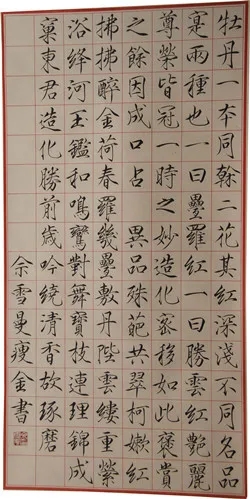 牡丹一本同榦二花其紅深淺不同名品
寔兩種也一曰疊羅紅一曰勝雲紅艷麗
尊榮皆冠一時之妙造化密移如此褒賞
之餘因成口占 異品殊葩共翠柯嫩紅
拂拂醉金荷春羅幾疊敷丹陛雲縷重縈
浴絳河玉鑑和鳴鸞對舞寶枝連理錦成
窠東君造化勝前歲吟繞清香故琢磨
佘雪曼瘦金書